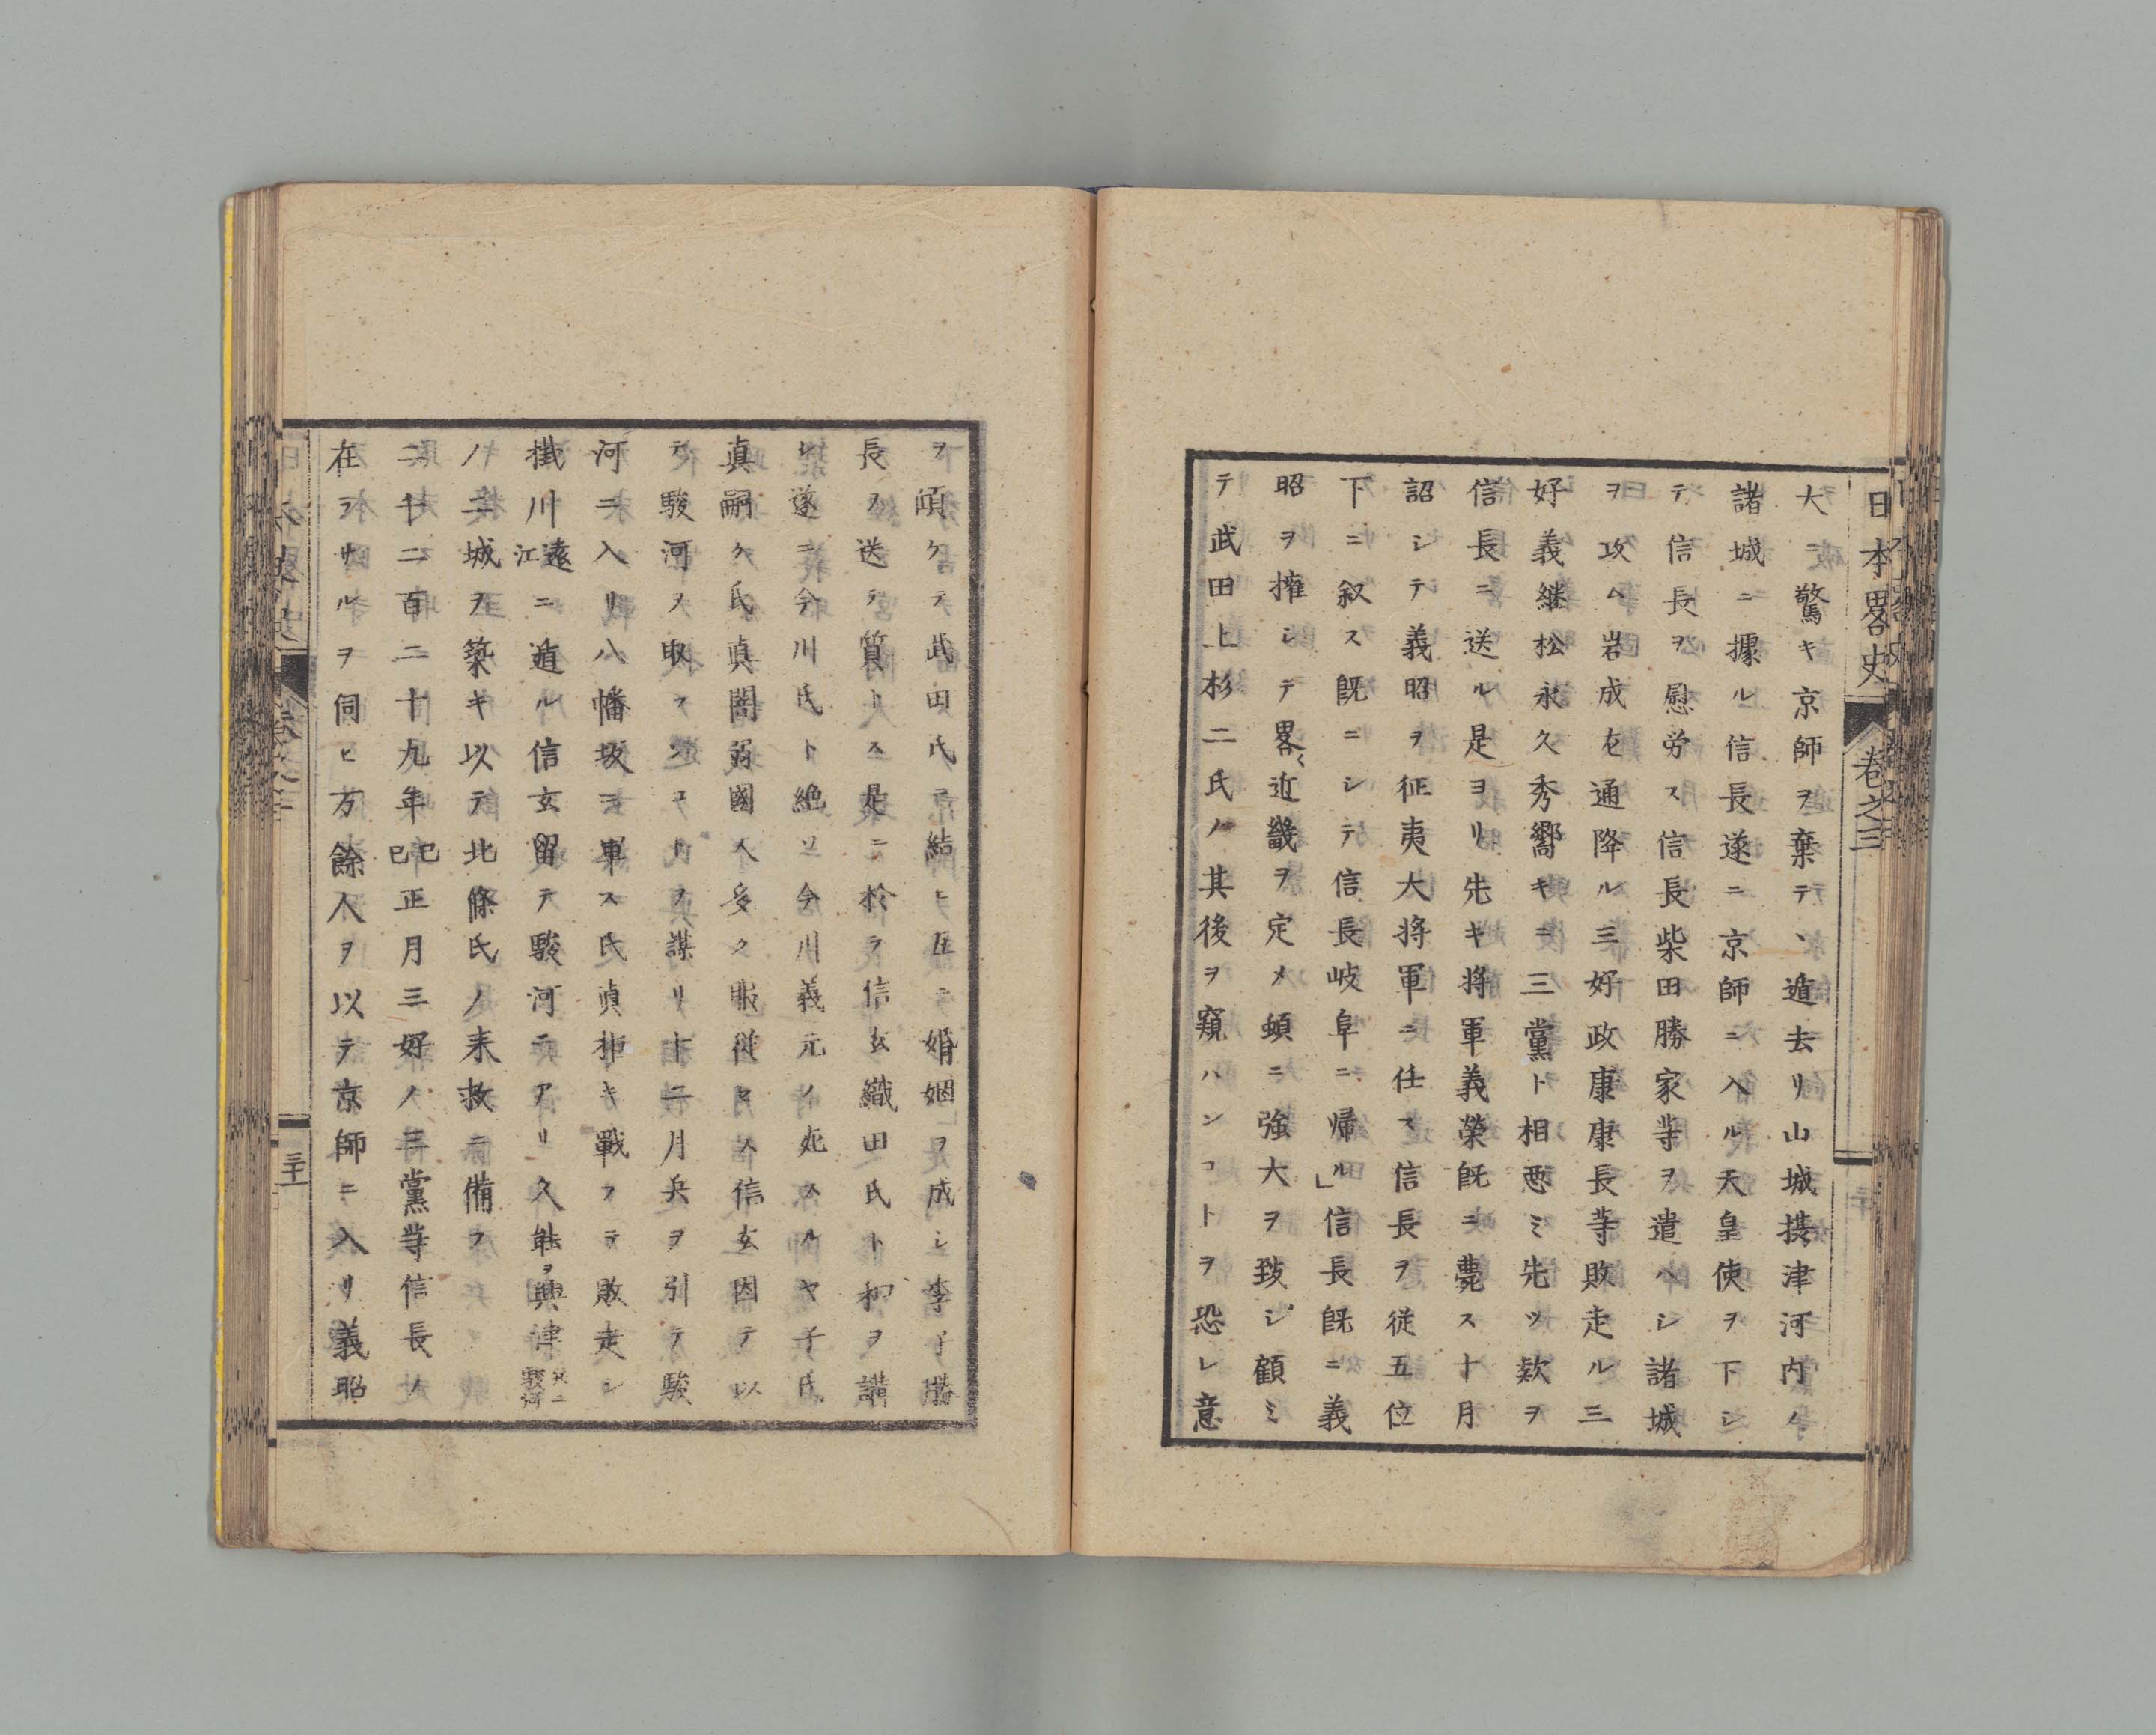 日本畧史 卷之三
大ニ驚キ京師ヲ棄テヽ遁去リ山城摂津河内ノ
諸城ニ據ル信長遂ニ京師ニ入ル天皇使ヲ下シ
テ信長ヲ慰労ス信長柴田勝家等ヲ遣ハシ諸城
ヲ攻ム岩成左通降ル三好政康康長等敗走ル三
好義継松永久秀嚮キニ三黨ト相悪ミ先ツ欵ヲ
信長ニ送ル是ヨリ先キ将軍義榮既ニ薨ス十月
詔シテ義昭ヲ征夷大将軍ニ任ス信長ヲ從五位
下ニ叙ス既ニシテ信長岐阜ニ帰ル」信長既ニ義
昭ヲ擁シテ畧々近畿ヲ定メ頓ニ強大ヲ致シ顧ミ
テ武田上杉二氏ノ其後ヲ窺ハンコトヲ恐レ意
ヲ傾ケテ武田氏ニ結ヒ互ニ婚姻ヲ成シ季子勝
長ヲ送テ質トス是ニ於テ信玄織田氏ト和ヲ講
シ遂ニ今川氏ト絶ツ今川義元ノ死スルヤ子氏
真嗣ク氏真闇弱國人多ク服従セス信玄因テ以
テ駿河ヲ取ランコトヲ謀リ十二月兵ヲ引テ駿
河ニ入リ八幡坂ニ軍ス氏真拒キ戰フテ敗走シ
掛川遠江ニ遁ル信玄留テ駿河ニアリ久能興津共ニ駿河
ノ二城ヲ築キ以テ北條氏ノ来救ニ備フ
二千二百二十九年己巳正月三好ノ三黨等信長ノ
在ヲサルヲ伺ヒ万餘人ヲ以テ京師ニ入リ義昭